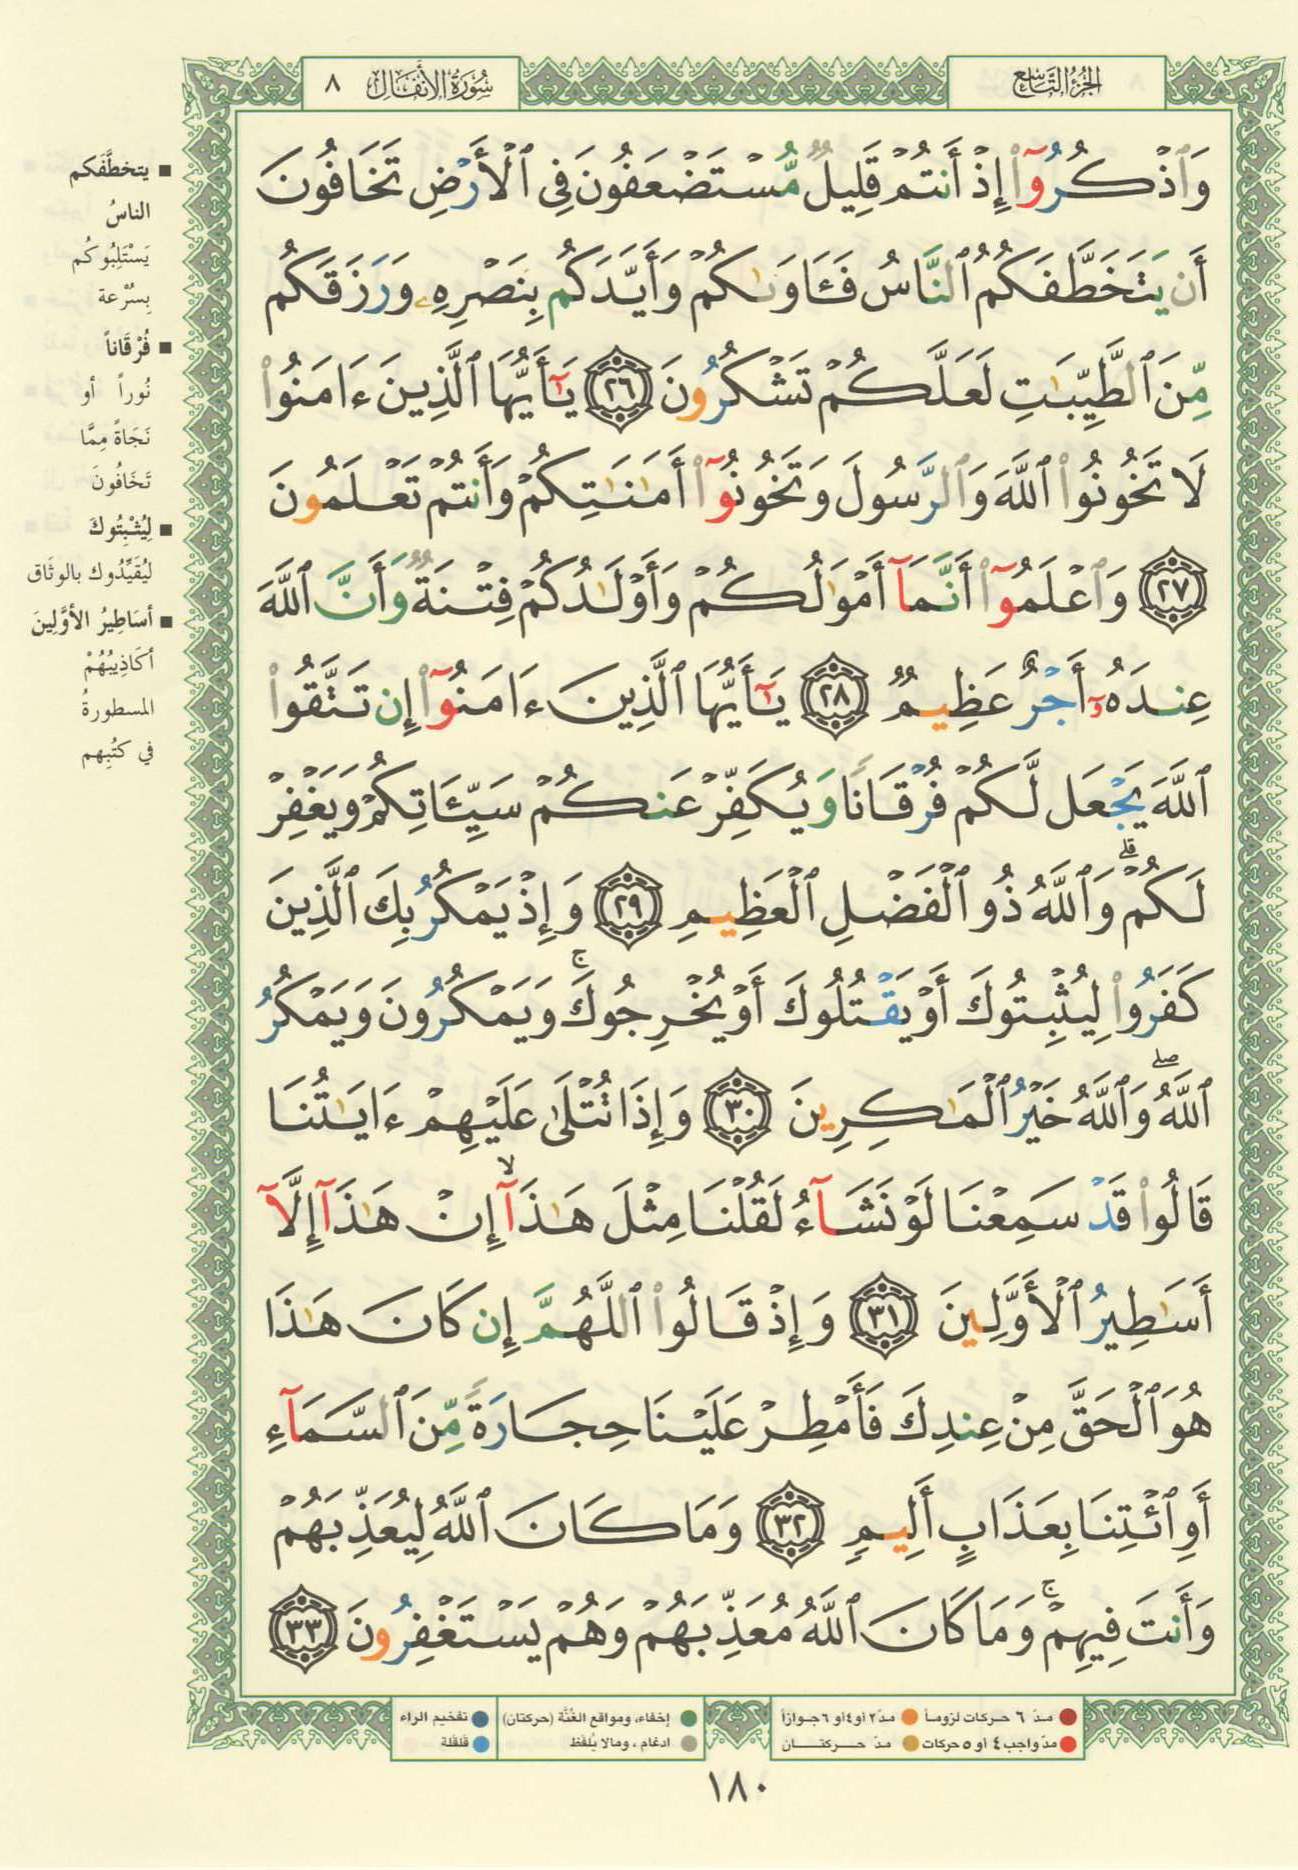 الجزء التاسع
سورة الأنفال ٨
وَٱذۡكُرُوٓاْ إِذۡ أَنتُمۡ قَلِيلٞ مُّسۡتَضۡعَفُونَ فِي ٱلۡأَرۡضِ تَخَافُونَ
أَن يَتَخَطَّفَكُمُ ٱلنَّاسُ فَـَٔاوَىٰكُمۡ وَأَيَّدَكُم بِنَصۡرِهِۦ وَرَزَقَكُم
مِّنَ ٱلطَّيِّبَٰتِ لَعَلَّكُمۡ تَشۡكُرُونَ ٢٦ يَٰٓأَيُّهَا ٱلَّذِينَ ءَامَنُواْ
لَا تَخُونُواْ ٱللَّهَ وَٱلرَّسُولَ وَتَخُونُوٓاْ أَمَٰنَٰتِكُمۡ وَأَنتُمۡ تَعۡلَمُونَ
٢٧ وَٱعۡلَمُوٓاْ أَنَّمَآ أَمۡوَٰلُكُمۡ وَأَوۡلَٰدُكُمۡ فِتۡنَةٞ وَأَنَّ ٱللَّهَ
عِندَهُۥٓ أَجۡرٌ عَظِيمٞ ٢٨ يَٰٓأَيُّهَا ٱلَّذِينَ ءَامَنُوٓاْ إِن تَتَّقُواْ
ٱللَّهَ يَجۡعَل لَّكُمۡ فُرۡقَانٗا وَيُكَفِّرۡ عَنكُمۡ سَيِّـَٔاتِكُمۡ وَيَغۡفِرۡ
لَكُمۡۗ وَٱللَّهُ ذُو ٱلۡفَضۡلِ ٱلۡعَظِيمِ ٢٩ وَإِذۡ يَمۡكُرُ بِكَ ٱلَّذِينَ
كَفَرُواْ لِيُثۡبِتُوكَ أَوۡ يَقۡتُلُوكَ أَوۡ يُخۡرِجُوكَۚ وَيَمۡكُرُونَ وَيَمۡكُرُ
ٱللَّهُۖ وَٱللَّهُ خَيۡرُ ٱلۡمَٰكِرِينَ ٣٠ وَإِذَا تُتۡلَىٰ عَلَيۡهِمۡ ءَايَٰتُنَا
قَالُواْ قَدۡ سَمِعۡنَا لَوۡ نَشَآءُ لَقُلۡنَا مِثۡلَ هَٰذَآۙ إِنۡ هَٰذَآ إِلَّآ
أَسَٰطِيرُ ٱلۡأَوَّلِينَ ٣١ وَإِذۡ قَالُواْ ٱللَّهُمَّ إِن كَانَ هَٰذَا
هُوَ ٱلۡحَقَّ مِنۡ عِندِكَ فَأَمۡطِرۡ عَلَيۡنَا حِجَارَةٗ مِّنَ ٱلسَّمَآءِ
أَوِ ٱئۡتِنَا بِعَذَابٍ أَلِيمٖ ٣٢ وَمَا كَانَ ٱللَّهُ لِيُعَذِّبَهُمۡ
وَأَنتَ فِيهِمۡۚ وَمَا كَانَ ٱللَّهُ مُعَذِّبَهُمۡ وَهُمۡ يَسۡتَغۡفِرُونَ ٣٣
■ يتخطَّفَكم
الناسُ
يَسْتَلِبُوكُم
بِسُرْعة
■ فُرْقَاناً
نُوراً أو
نَجَاةً مِمَّا
تَخَافُونَ
■ لِيُثْبِتُوكَ
ليُقَيِّدُوك بالوثَاق
■ أسَاطِيرُ الأوَّلِينَ
أكَاذِيبُهُمْ
المسطورةُ
في كتُبِهم
مدّ ٦ حركات لزوماً مدّ ٢ أو ٤ أو ٦ جوازاً
مدّ واجب ٤ أو ٥ حركات مدّ حركتان
إخفاء، ومواقع الغُنَّة (حركتان) تفخيم الراء
ادغام، ومالا يُلفَظ قلقلة
١٨٠